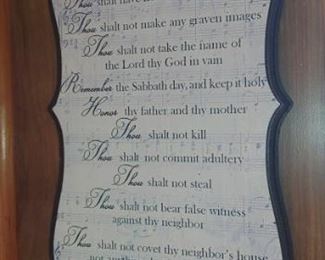 Thou shalt have
Thou shalt not make any graven images
Thou shalt not take the name of
the Lord thy God in vain
Remember the Sabbath day, and keep it holy
Honor thy father and thy mother
Thou shalt not kill
Thou shalt not commit adultery
Thou shalt not steal
Thou shalt not bear false witness
against thy neighbor
Thou shalt not covet thy neighbor's house